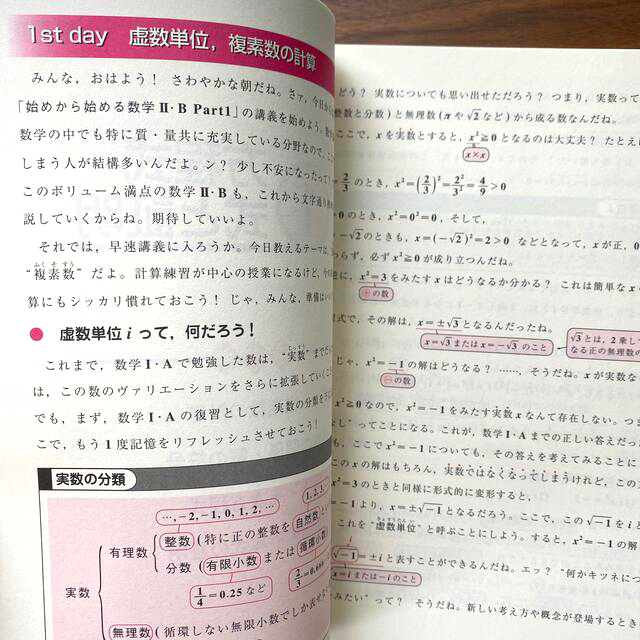 1st day 虚数単位, 複素数の計算
みんな, おはよう! さわやかな朝だね。さァ, 今日か
「始めから始める数学Ⅱ・B Part1」の講義を始めよう。数学
数学の中でも特に質・量共に充実している分野なので, こ
しまう人が結構多いんだよ。ン? 少し不安になったって?
このボリューム満点の数学Ⅱ・Bも, これから文字通り
説していくからね。期待していいよ。
それでは, 早速講義に入ろうか。今日教えるテーマは,
ふくそすう
“複素数”だよ。計算練習が中心の授業になるけど,
算にもシッカリ慣れておこう! じゃ, みんな, 準備はいい
● 虚数単位 i って, 何だろう!
じっすう
これまで, 数学Ⅰ・Aで勉強した数は, “実数”までだ
は, この数のヴァリエーションをさらに拡張していくこ
でも, まず, 数学Ⅰ・Aの復習として, 実数の分類を下に
こで, もう1度記憶をリフレッシュさせておこう!
実数の分類
…, −2, −1, 0, 1, 2, …
1, 2, 3,
整数 (特に正の整数を 自然数 と
有理数
分数 (有限小数 または 循環小数
実数
1/4=0.25 など
2/3=0.666
無理数 (循環しない無限小数でしか表せな
どう? 実数についても思い出せただろう? つまり, 実数って
整数と分数)と無理数(πや√2など)から成る数なんだね。
ここで, xを実数とすると, x²≧0となるのは大丈夫? たとえ
x×x
2/3 のとき, x²=(2/3)²=2²/3²=4/9>0
0のとき, x²=0²=0, そして,
−√2のときも, x=(−√2)²=2>0 などとなって, xが正, 0
らず, 必ずx²≧0が成り立つんだね。
に, x²=3をみたすxはどうなるか分かる? これは簡単なx
⊕の数
式で, その解は, x=±√3となるんだったね。
x=√3またはx=−√3のこと
√3とは, 2乗して
なる正の無理数の
じゃ, x²=−1の解はどうなる? ……, そうだね。xが実数な
⊖の数
x²≧0なので, x²=−1をみたす実数xなんて存在しない。つま
なし”ってことになる。これが, 数学Ⅰ・Aまでの正しい答えだっ
も, ここでx²=−1についても, その答えを考えてみることに
このxの解はもちろん, 実数ではなくなってしまうけれど, この
x²=3のときと同様に形式的に変形すると,
−1より, x=±√−1となるだろう。ここで, この√−1をi
これを“虚数単位”と呼ぶことにしよう。すると, x²=−1の解
i
√−1=±iと表すことができるんだね。エッ? “何かキツネに
x=iまたは−iのこと
みたい”って? そうだね。新しい考え方や概念が登場するとき